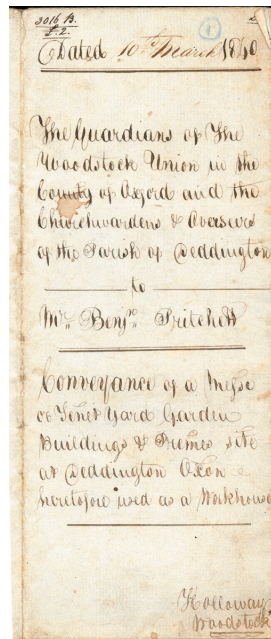 3016 B.
S. 2.
1
Dated 10th March 1840
The Guardians of The
Woodstock Union in the
County of Oxford and the
Churchwardens & Overseers
of the Parish of Deddington
to
Mr. Benjn. Pritchett
Conveyance of a Messe
or Tenet Yard Garden
Buildings & Premes site
at Deddington Oxon
heretofore used as a Workhouse
Holloway
Woodstock